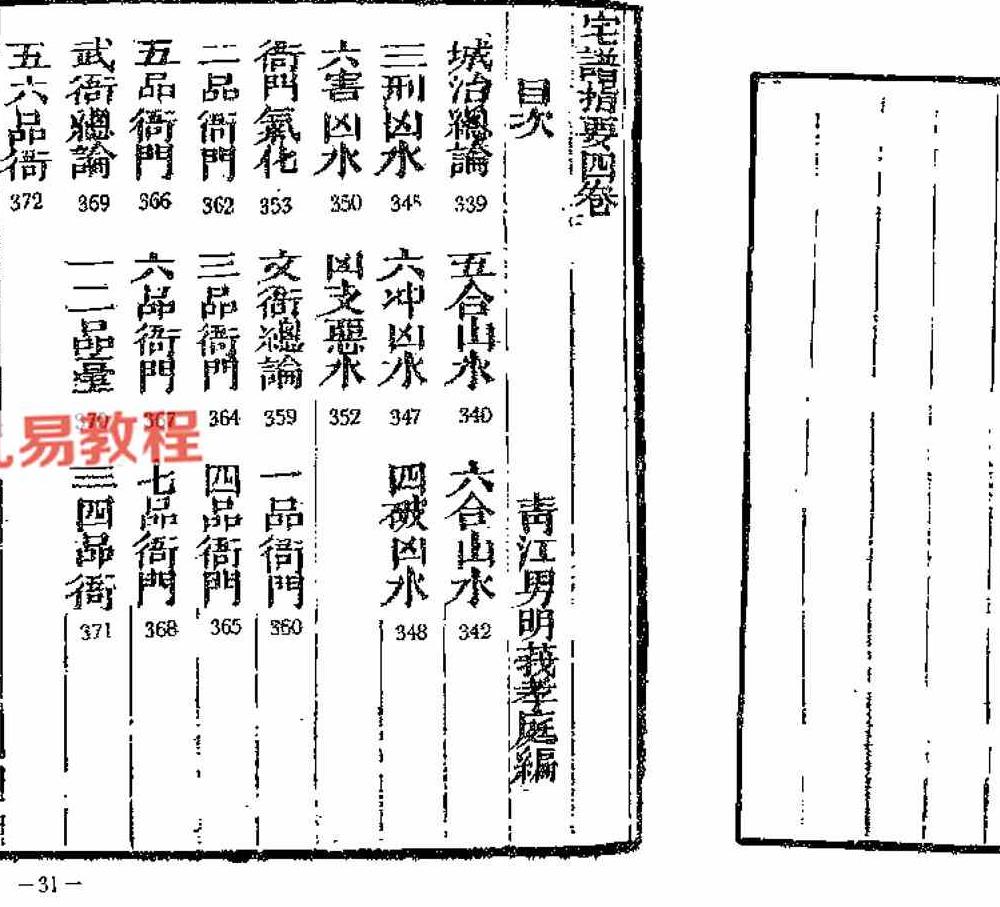 宅譜指要四卷
目次
青江男明莪孝庭編
城治總論 339
五合山水 340
六合山水 342
三刑凶水 345
六冲凶水 347
四破凶水 348
六害凶水 350
凶支惡水 352
衙門氣化 353
文衙總論 359
一品衙門 360
二品衙門 362
三品衙門 364
四品衙門 365
五品衙門 366
六品衙門 367
七品衙門 368
武衙總論 369
一二品臺 370
三四品衙 371
五六品衙 372
易教程
—31—